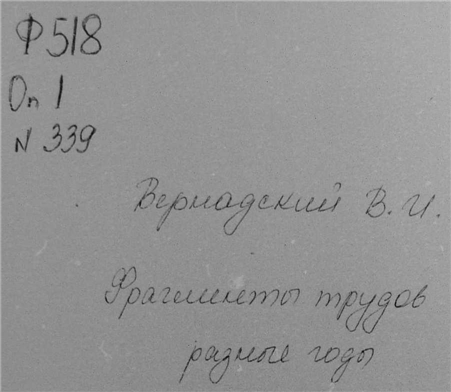 Ф518
Оп 1
N 339
Вернадский В. И.
Фрагменты трудов
разные годы